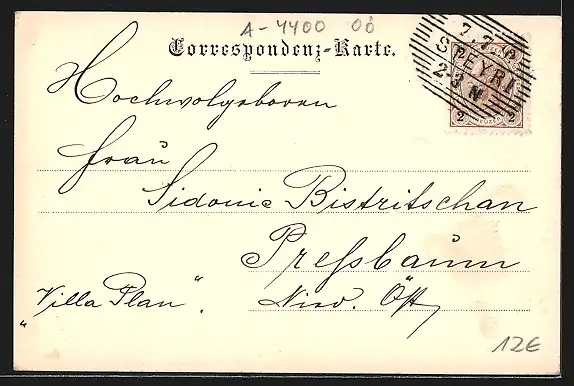 A-4400 OÖ
Correspondenz-Karte.
7.7.
STEYR
2-3 N
2 2
Hochwolgeboren
Frau
Sidonie Bistritschan
Preßbaum
„Villa Plan“. Nied. Öst
12€